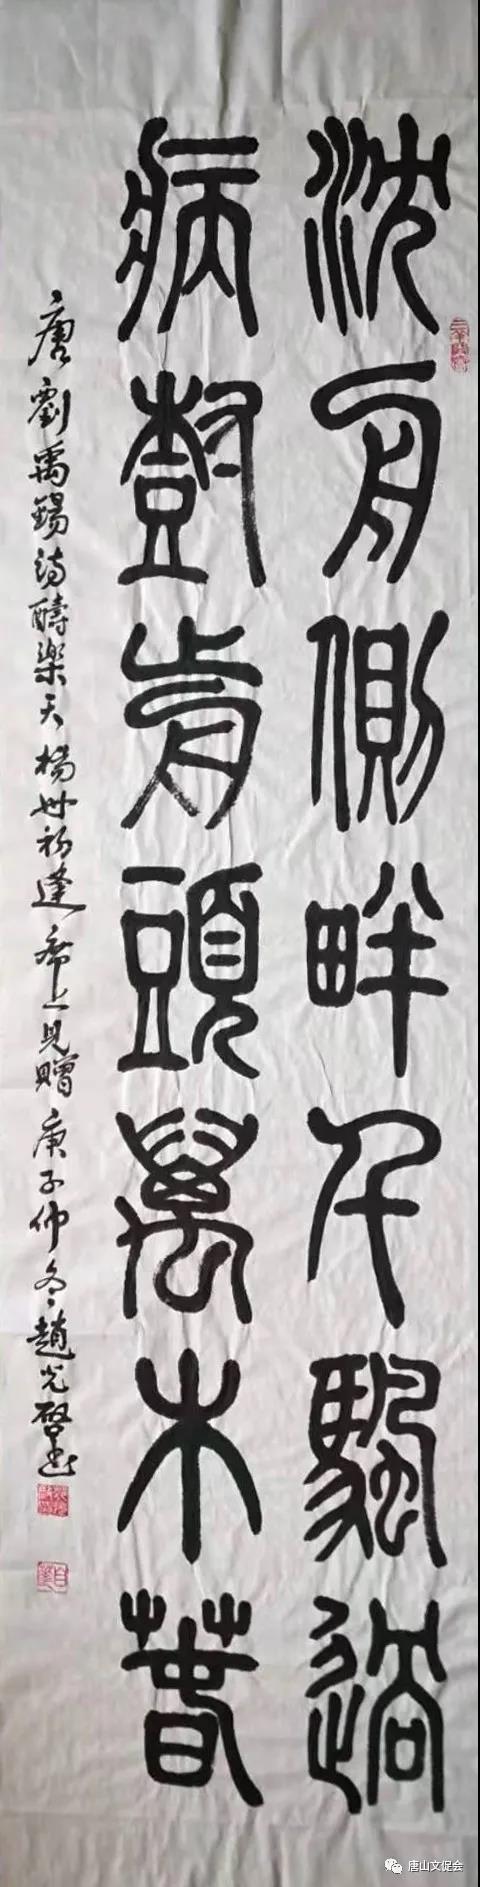 沈舟側畔千颿過
病樹前頭萬木春
唐劉禹錫詩醻樂天楊州初逢席上見贈 庚子仲冬趙光啓書
唐山文促会